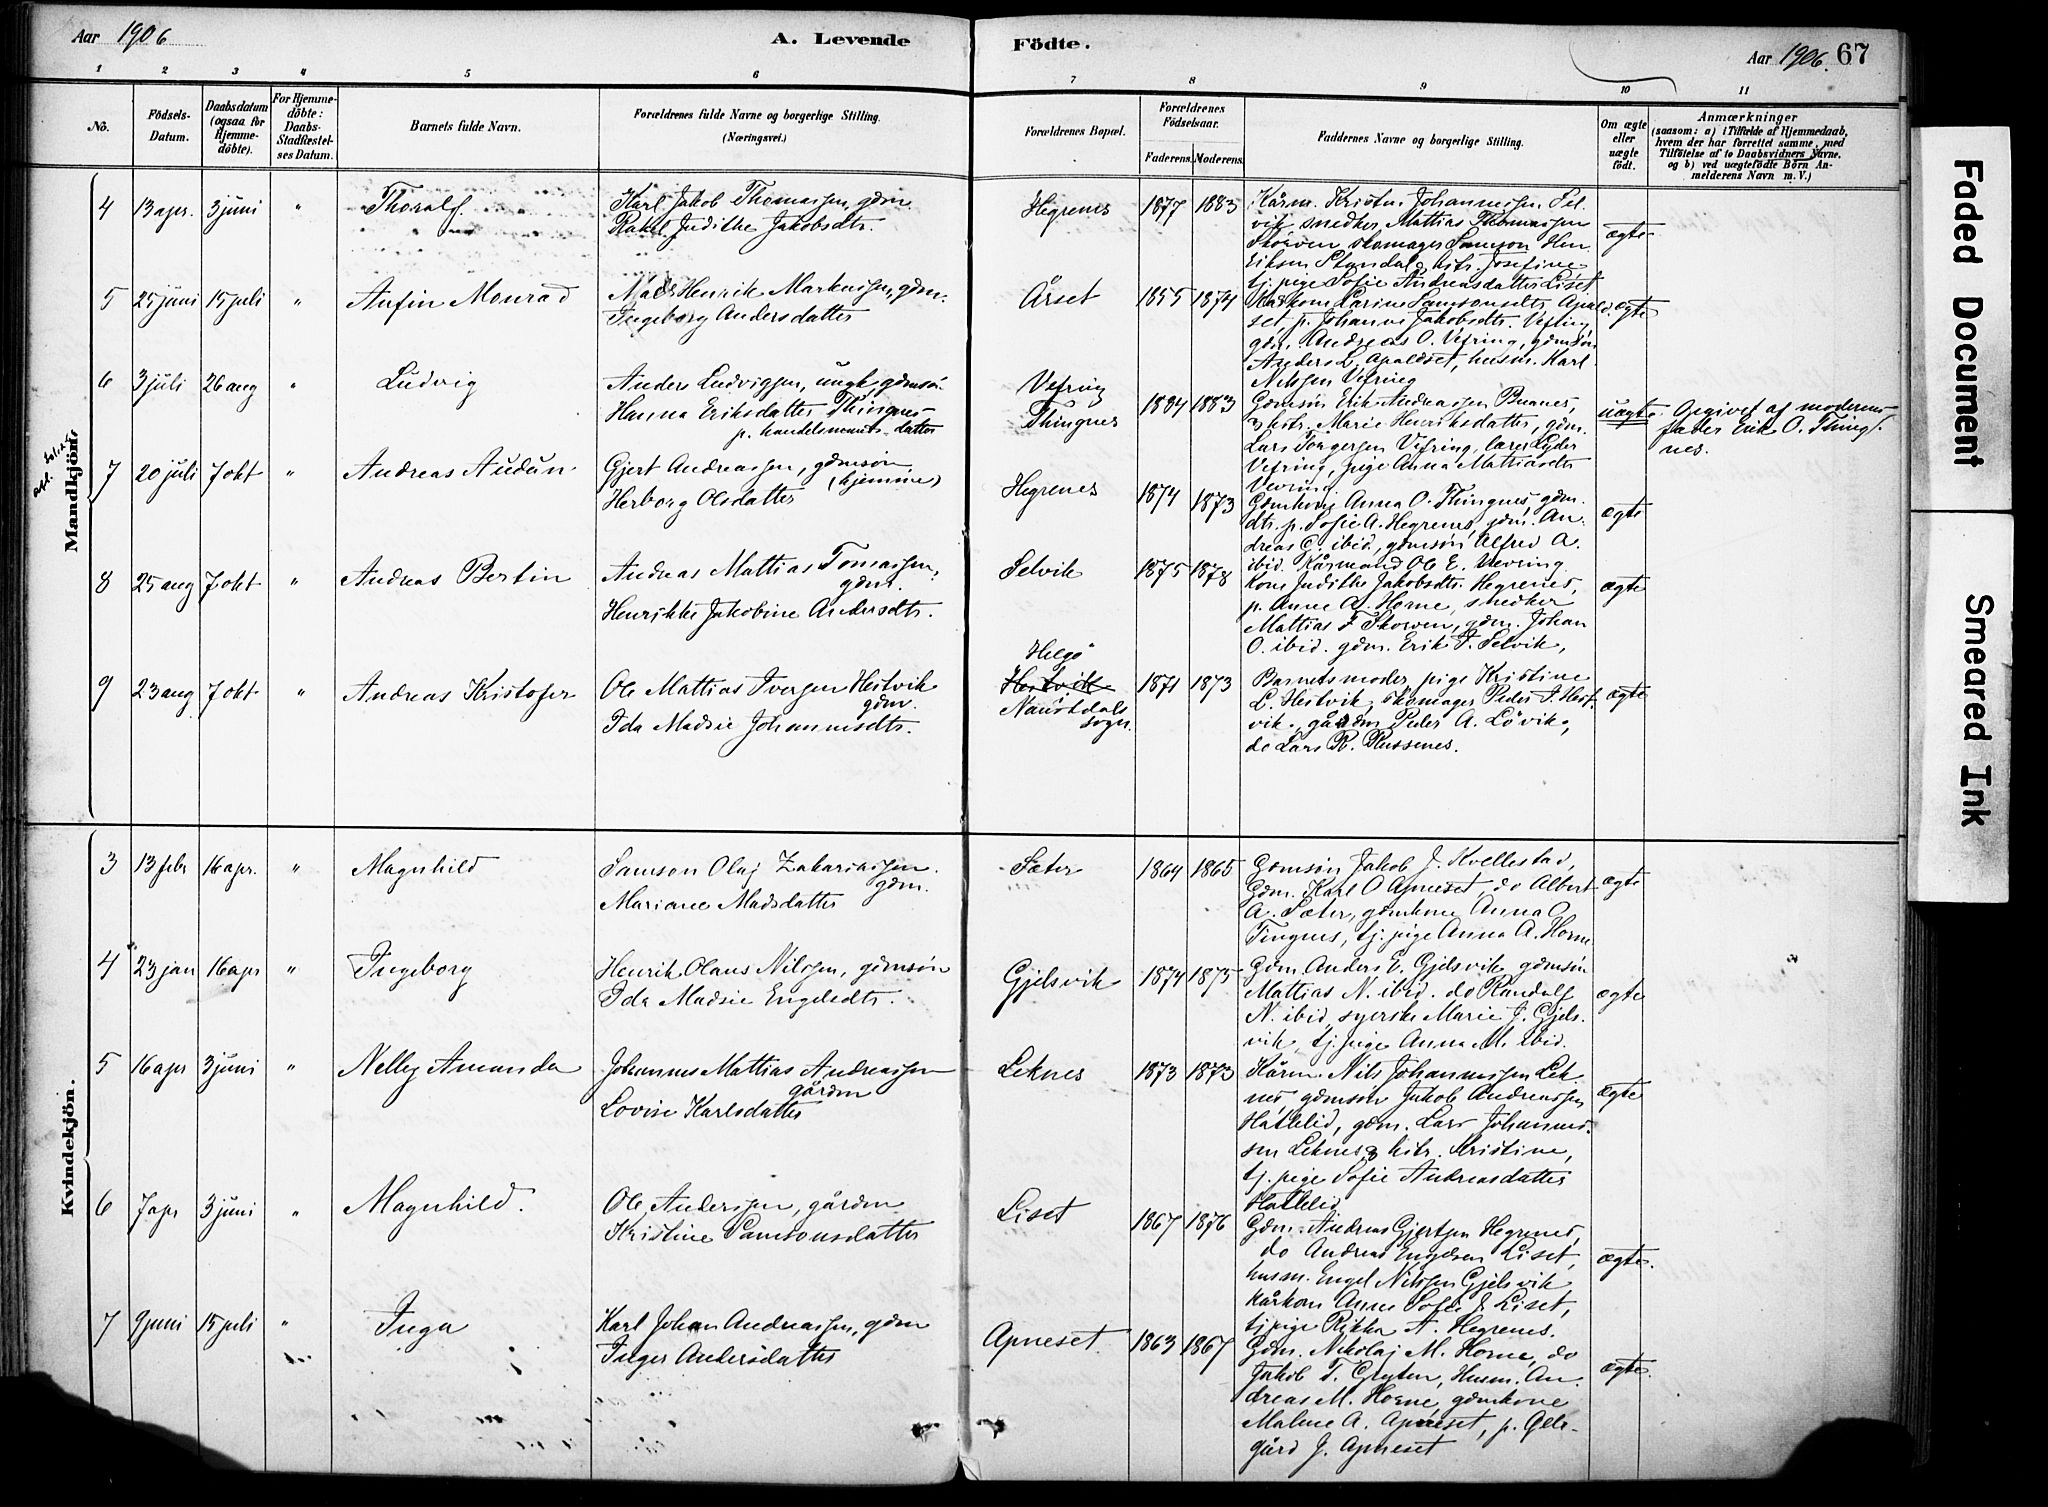 Aar 1906
A. Levende
Födte.
Aar 1906. 67
1 2 3 4 5 6 7 8 9 10 11
No.
Födsels-
Datum.
Daabsdatum
(ogsaa for
Hjemme-
döbte).
For Hjemme-
döbte:
Daabs-
Stadfæstel-
ses Datum.
Barnets fulde Navn.
Forældrenes fulde Navne og borgerlige Stilling.
(Næringsvei.)
Forældrenes Bopæl.
Forældrenes
Födselsaar.
Faderens. Moderens.
Faddernes Navne og borgerlige Stilling.
Om ægte
eller
uægte
födt.
Anmærkninger
(saasom: a) i Tilfælde af Hjemmedaab,
hvem der har forrettet samme, med
Tilföielse af to Daabsvidners Navne.
og b) ved uægtefödte Börn An-
melderens Navn m. V.)
Mandkjön.
4 13 apr. 3 juni " Thoralf.
Karl Jakob Thomassen, gdm.
Rakel Judithe Jakobsdtr.
Hegrenes 1877 1883
Kårm. Kristen Johannessen Sel-
vik snedker Mattias Thomassen
Skorven skomager Samson Hen
riksen Standal & hstr. Josefine
tj. pige Sofie Andreasdatter Liset.
ægte
5 25 juni 15 juli " Anfin Monrad
Mads Henrik Markussen, gdm.
Ingeborg Andersdatter
Årset 1855 1874
Kårkone Larine Samsonsdtr Apald-
set, p. Johanne Jakobsdtr. Vefring
gdm. Andreas O. Vefring, gdmsön
Anders L. Apaldset, husm. Karl
Nilssen Vefring
ægte
6 3 juli 26 aug " Ludvig
Anders Ludvigsen, ungk. gdmsön
Hanna Eriksdatter Thingnes
p. handelsmands datter
Vefring
Thingnes 1884 1883
Gdmsön Erik Andreassen Buanes,
& hstr. Marie Henriksdatter, gdm.
Lars Torgersen Vefring, lærer Lyder
Vefring, pige Anna Mathiasdtr
Vevring.
uægte. Opgivet af moderens
fader Erik O. Thing-
nes.
7 20 juli 7 okt " Andreas Audun
Gjert Andreassen, gdmsön
(hjemme)
Herborg Olsdatter
Hegrenes 1874 1873
Gdmkone Anna O. Thingnes, gdm.
dtr. p. Sofie A. Hegrenes, gdm. An-
dreas G. ibid, gdmsön Alfred A.
ibid. Kårmand Ole E. Vevring.
ægte
8 25 aug 7 okt " Andreas Bertin
Andreas Mattias Tomassen,
gdm.
Henrikke Jakobine Andersdtr.
Selvik 1875 1878
Kone Judithe Jakobsdtr. Hegrenes,
p. Anne A. Horne, snedker
Mattias T. Skorven, gdm. Johan
O. ibid. gdm. Erik T. Selvik,
ægte
9 23 aug 7 okt " Andreas Kristofer
Ole Mattias Iversen Hestvik
gdm.
Ida Madsie Johannesdtr.
Helgö
Hestvik
Naustdals
sogn. 1871 1873
Barnets moder, pige Kristine
L. Hestvik, skomager Peder I. Hest-
vik, gårdm Peder A. Lövik,
do Lars R. Russenes.
ægte
Kvindekjön.
3 13 febr 16 apr. " Magnhild
Samson Olaj Zakariassen.
gdm.
Mariane Madsdatter
Sæter 1864 1865
Gdmsön Jakob J. Kvellestad,
Gdm. Karl O Apneset, do Albert
A. Sæter, gdmkone Anna O
Tingnes, tj. pige Anna A. Horne
ægte
4 23 jan 16 apr " Ingeborg
Henrik Olaus Nilssen, gdmsön
Ida Madsie Engelsdtr.
Gjelsvik 1874 1875
Gdm. Anders E. Gjelsvik gdmsön
Mattias N. ibid. do Randolf
N. ibid, syerske Marie J. Gjels-
vik, tj. pige Anna M. ibid.
ægte
5 16 apr 3 juni " Nelly Amanda
Johannes Mattias Andreassen
gårdm
Lovise Karlsdatter
Leknes 1873 1873
Kårm. Nils Johannessen Lek-
nes, gdmsön Jakob Andreassen
Hatlelid, gdm. Lars Johannes-
sen Leknes & hstr. Kristine,
tj. pige Sofie Andreasdatter
Hatlelid
ægte
6 7 apr 3 juni " Magnhild.
Ole Anderssen, gårdm
Kristine Samsonsdatter
Liset 1867 1876
Gdm. Andreas Gjertsen Hegrenes,
do Andreas Engelsen Liset,
husm. Engel Nilssen Gjelsvik
kårkone Anne Sofie J. Liset,
tj pige Rikka A. Hegrenes.
ægte.
7 9 juni 15 juli " Inga
Karl Johan Andreassen, gdm
Inger Andersdatter
Apneset. 1863 1867
Gdm. Nikolaj M. Horne, do
Jakob T. Gryten, Husm. An-
dreas M. Horne, gdmkone
Malene A. Apneset, p. Olle-
gård J. Apneset
ægte.
Faded Document
Smeared Ink